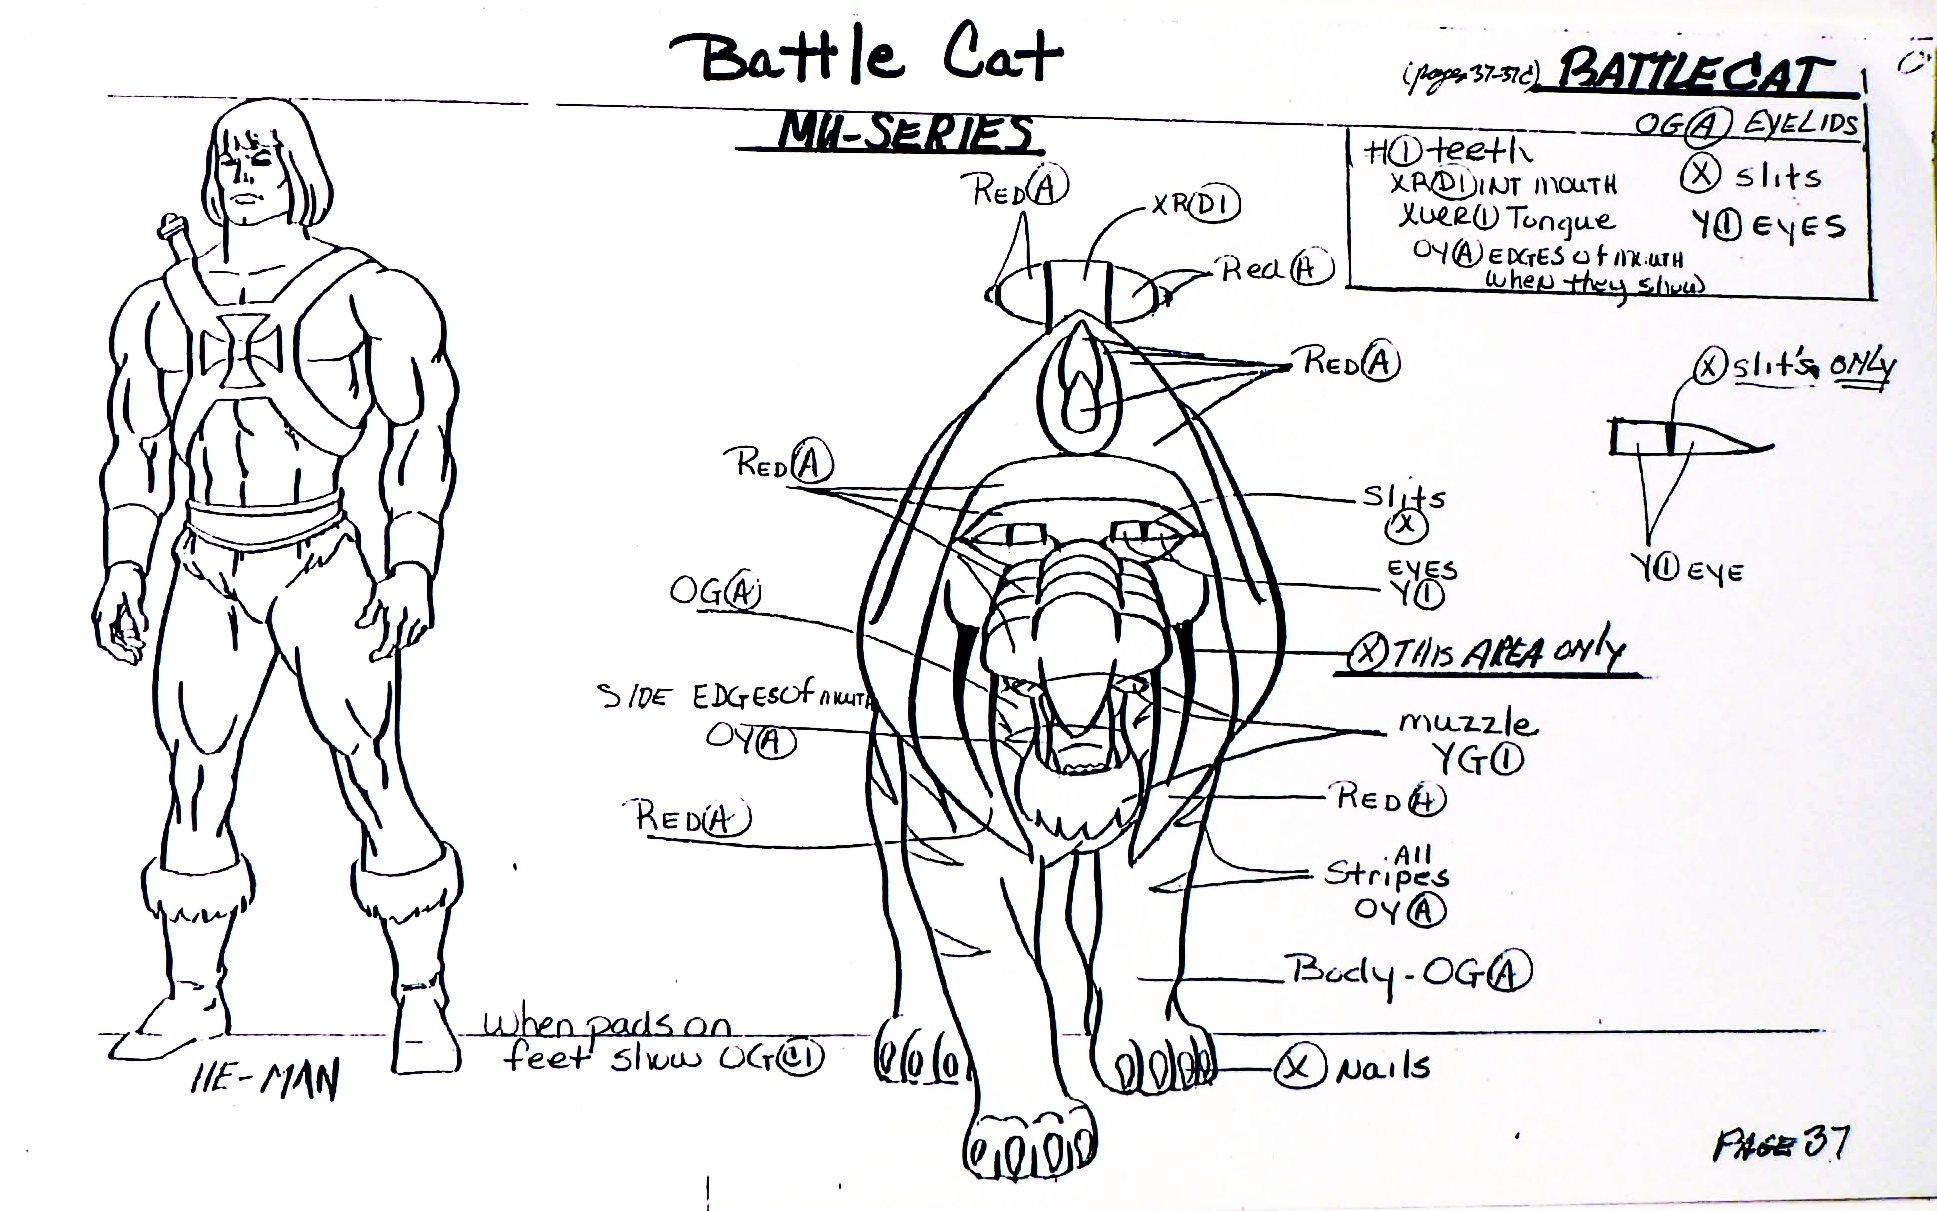 Battle Cat
(pages 37-37C) BATTLECAT
MU-SERIES
OG(A) EYELIDS
H(1) teeth
(X) slits
XR(D1) INT MOUTH
XVRR(1) Tongue
Y(1) EYES
OY(A) EDGES of MOUTH
(when they show)
RED(A)
XR(D1)
Red(A)
RED(A)
(X) slit's ONLY
RED(A)
Slits
(X)
Y(1) EYE
EYES
Y(1)
OG(A)
(X) THIS AREA ONLY
SIDE EDGES of MOUTH
OY(A)
muzzle
YG(1)
RED(A)
RED(A)
All
Stripes
OY(A)
Body-OG(A)
when pads on
feet show OG(C1)
HE-MAN
(X) Nails
PAGE 37